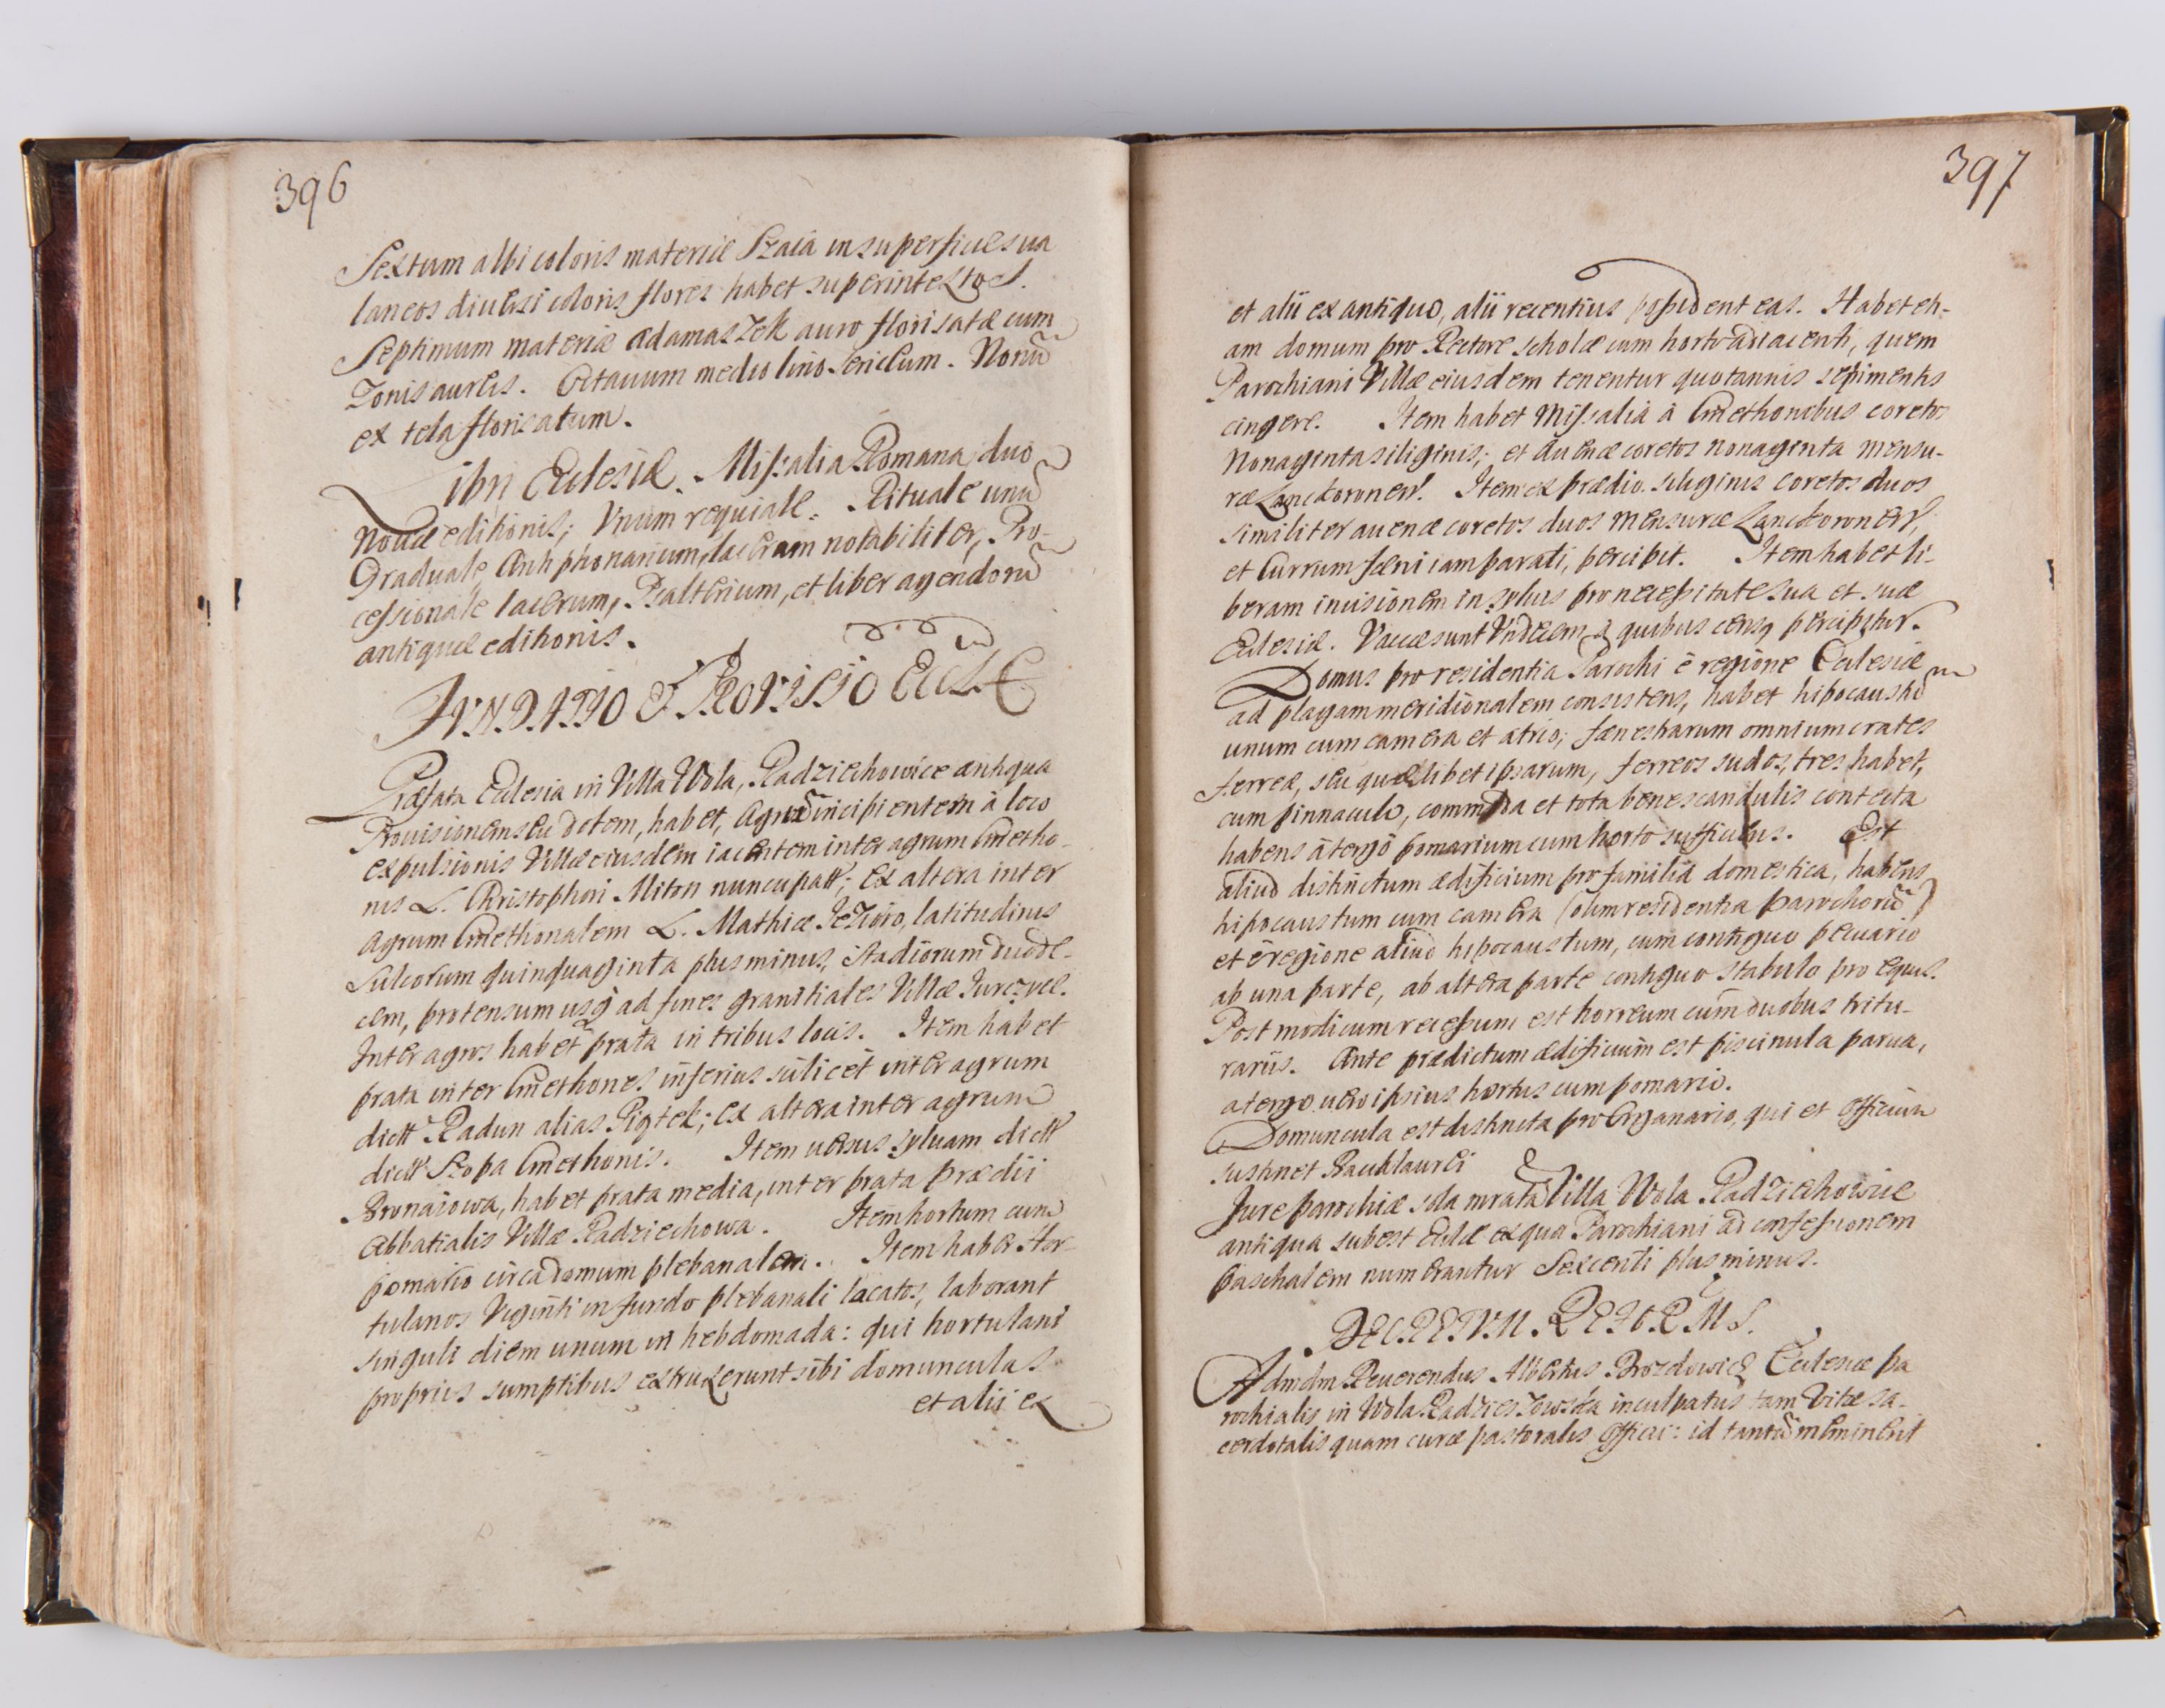 396
Sextum albi coloris materiæ Szaia in superficie sua
laneos diuersi coloris flores habet superintextos.
Septimum materiæ adamaszek auro florisatæ cum
Zonis aureis. Octauum medio lino sericeum. Nonũ
ex tela florisatum.
Libri Ecclesiæ. Missalia Romana duo
Nouæ editionis; Vnum requiale. Rituale unũ
Graduale Antiphonarium, laceram notabiliter, Pro-
cessionale lacerum, Psalterium, et liber agendorũ
antiquæ editionis.
FVNDATIO & PROVISIO ECCL.Æ
Præfata Ecclesia in Villa Wola, Radziechowice antiqua
Prouisionem seu dotem, habet, Agrũ incipientem à loco
expulsionis Villæ eiusdem iacentem inter agrum Cmetho-
nis L. Christophori Miton nuncupatt; Ex altera inter
agrum Cmethonalem L. Mathiæ Jezioro, latitudinis
sulcorum quinquaginta plus minus, stadiorum duode-
cem, protensum usq ad fines granitiales Villæ Jurczyce.
Inter agros habet prata in tribus locis. Item habet
prata inter Cmethones inferius scilicet inter agrum
dictt Radun alias Piątek; ex altera inter agrum
dictt Szopa Cmethonis. Item uersus syluam dictt
Bronaiowa, habet prata media, inter prata Prædii
Abbatialis Villæ Radziechowa. Item hortum cum
pomario circa domum plebanalem. Item habet Hor-
tulanos Viginti in fundo plebanali locatos, laborant
singuli diem unum in hebdomada: qui hortulani
propriis sumptibus extruxerunt sibi domunculas
et alii ex
397
et alii ex antiquo, alii recentius possident eas. Habet eti-
am domum pro Rectore scholæ cum horto adiacenti, quem
Parochiani Villæ eiusdem tenentur quotannis sepimentis
cingere. Item habet Missalia à Cmethonibus coretos
Nonaginta siliginis; et Auenæ coretos nonaginta mensu-
ræ Lanckoronen. Item ex prædio siliginis coretos duos
similiter auenæ coretos duos mensuræ Lanckoronen,
et Currum fœni iam parati, percipit. Item habet li-
beram incisionem in syluis pro necessitate sua et suæ
Ecclesiæ. Vaccæ sunt Vndecem à quibus censq percipitur.
Domus pro residentia Parochi è regione Ecclesiæ
ad plagam meridionalem consistens, habet hipocaustũ
unum cum camera et atrio; fænestrarum omnium crates
ferreæ, seu quælibet ipsarum, ferreos sudos, tres habet,
cum pinnaculo, commoda et tota bene scandulis contecta
habens à tergo pomarium cum horto sufficiens. Est
aliud distinctum ædificium pro familia domestica, habens
hipocaustum cum camera (olim residentia parochorũ)
et è regione aliud hipocaustum, cum contiguo pecuario
ab una parte, ab altera parte contiguo stabulo pro equis.
Post modicum recessum est horreum cum duobus tritu-
rariis. Ante prædictum ædificium est piscinula parua,
a tergo uero ipsius hortus cum pomario.
Domuncula est distincta pro Organario, qui et officium
sustinet Bacchlaurei
Jure parochiæ sola mrata Villa Wola Radziechowice
antiqua subest Ecclæ ex qua Parochiani ad confessionem
paschalem numerantur Sexcenti plus minus.
DECRETVM REFORMS.
Admdm Reuerendus Albertus Brozdowicz Ecclesiæ pa
rochialis in Wola Radzieszowska inculpatus tam Vitæ sa-
cerdotalis quam curæ pastoralis officii: id tantũ meminerit